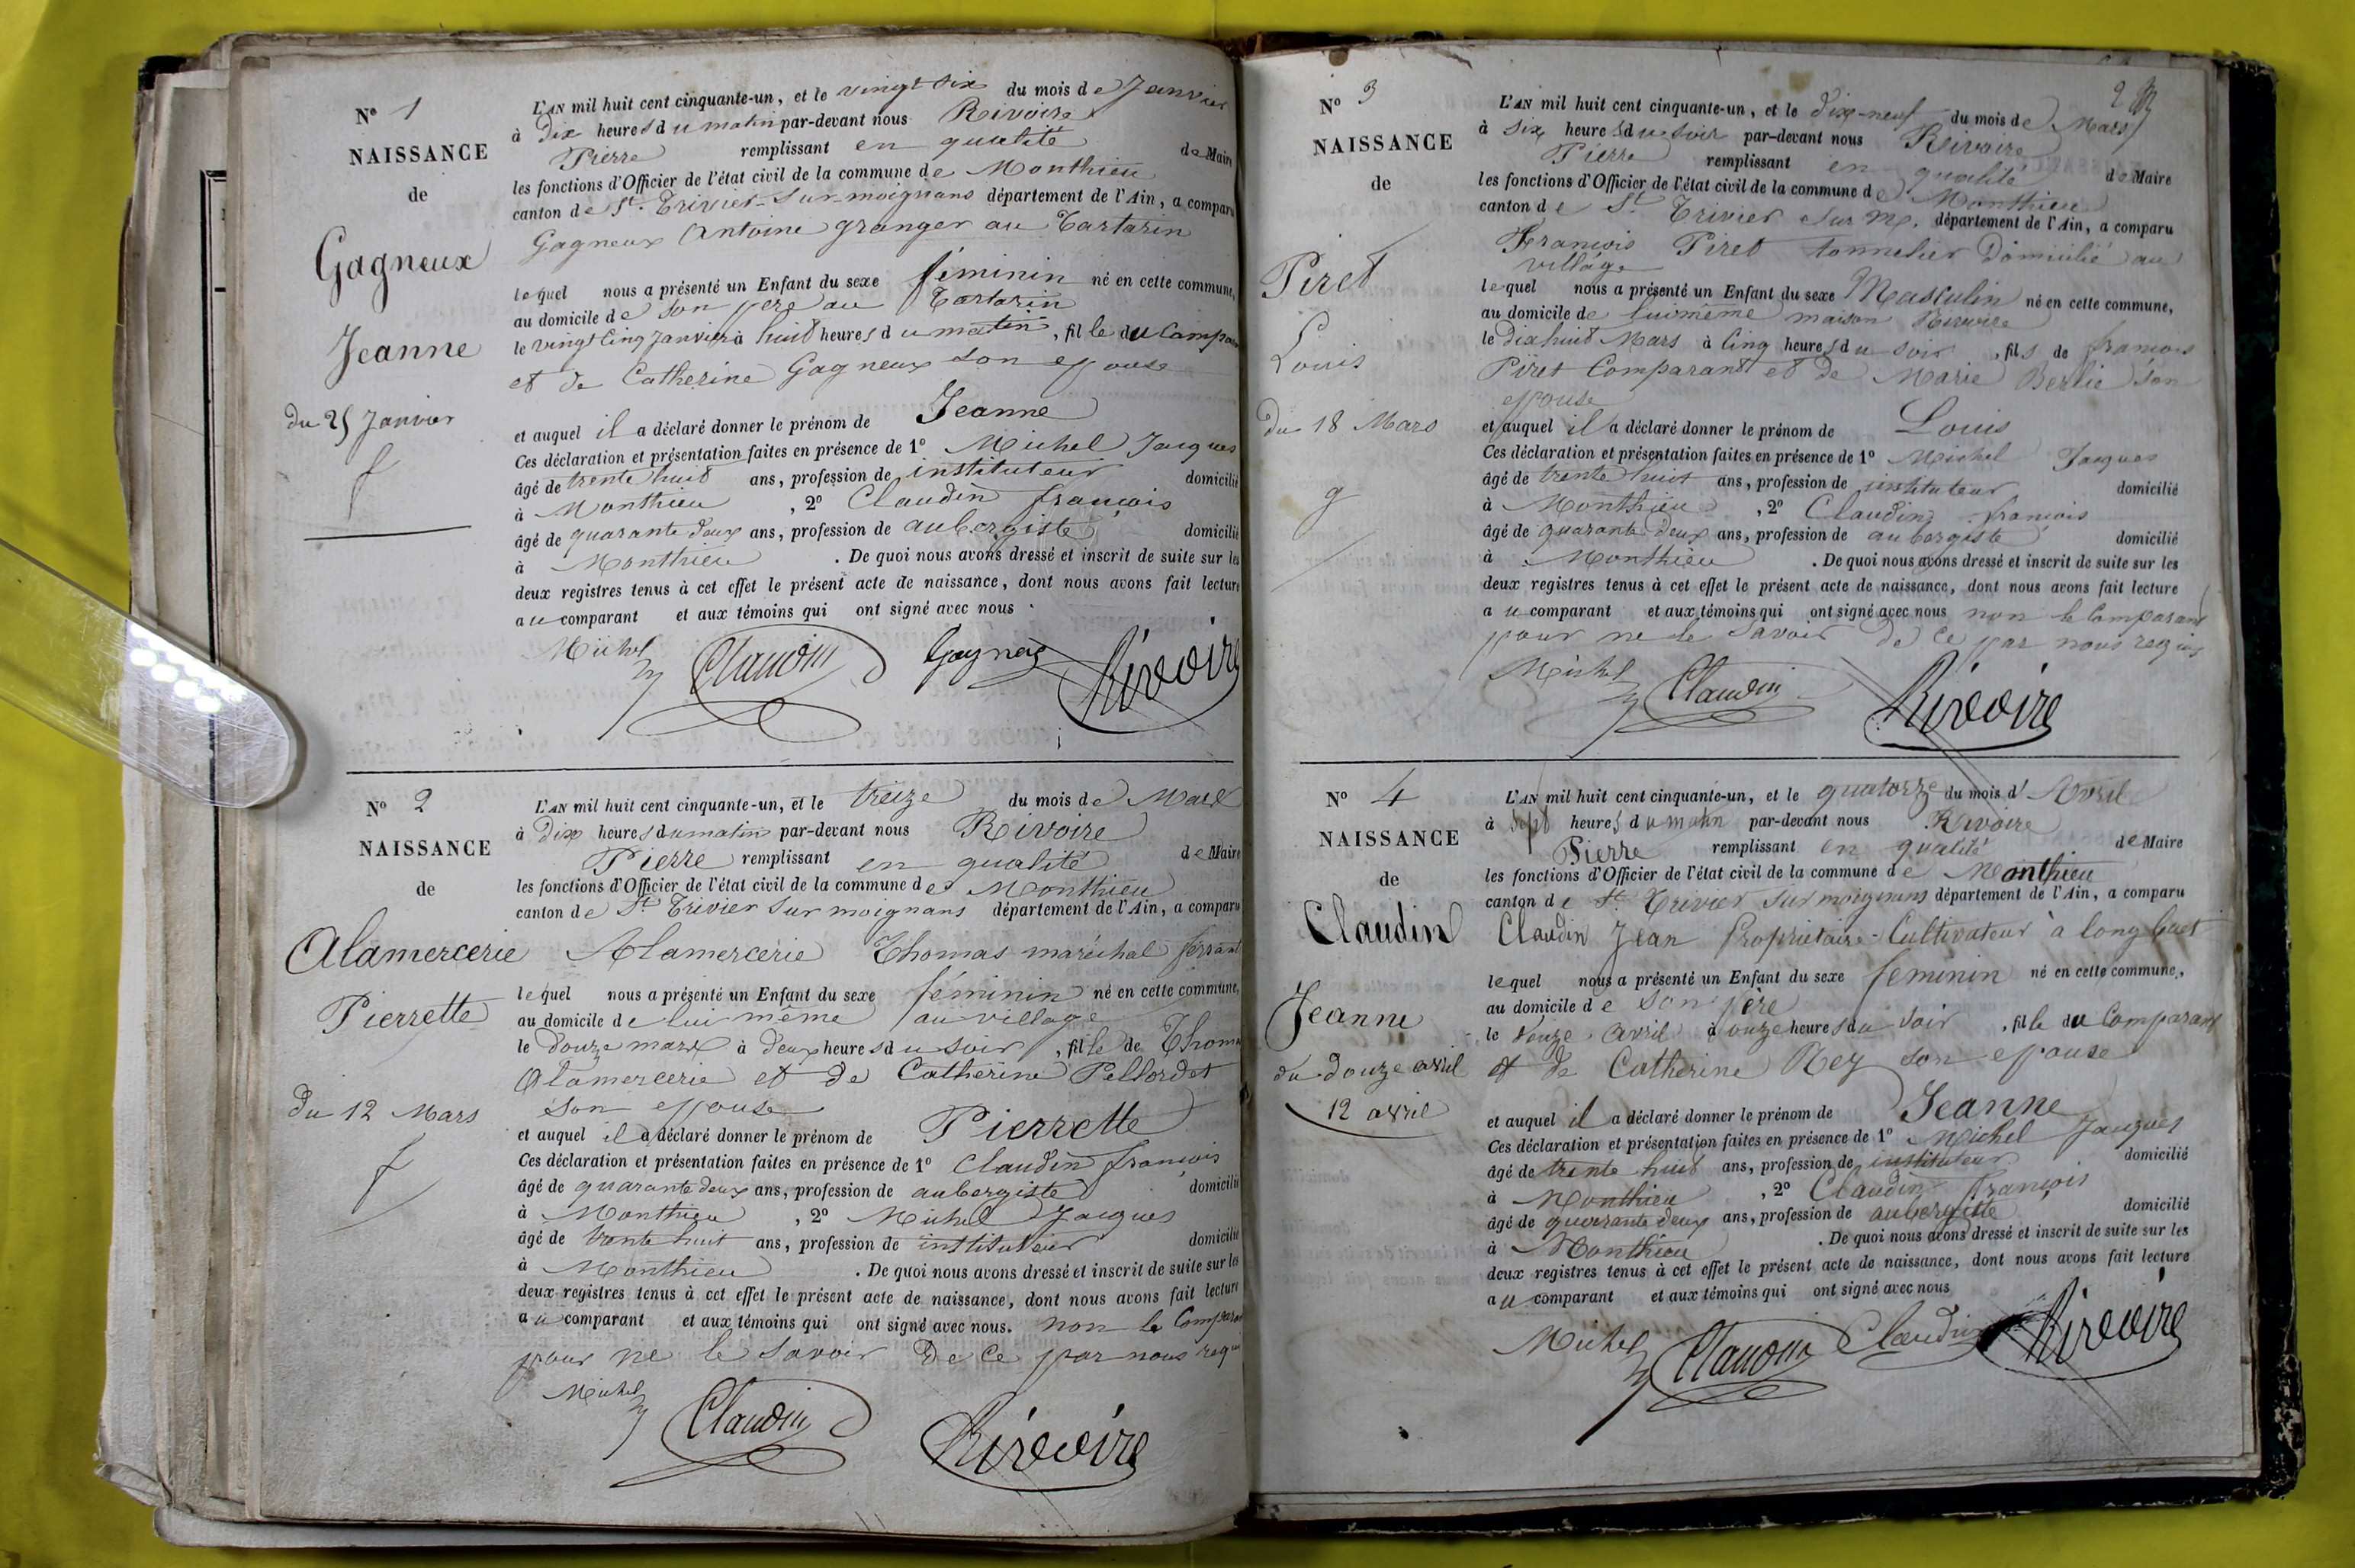 N° 1
NAISSANCE
de
Gagneux
Jeanne
du 25 Janvier
f
L'AN mil huit cent cinquante-un, et le vingt six du mois de Janvier
à Dix heures du matin par-devant nous Rivoire
Pierre remplissant en qualité de Maire
les fonctions d'Officier de l'état civil de la commune de Monthieu
canton de St. Trivier-Sur-moignans département de l'Ain, a comparu
Gagneux Antoine granger au Tartarin
lequel nous a présenté un Enfant du sexe féminin né en cette commune,
au domicile de son pere au Tartarin
le vingt Cinq Janvier à huit heures du matin, fille du Compa
et de Catherine Gagneux son epouse
et auquel il a déclaré donner le prénom de Jeanne
Ces déclaration et présentation faites en présence de 1° Michel Jacques
âgé de trente huit ans, profession de instituteur domicilié
à Monthieu, 2° Claudin françois
âgé de quarante deux ans, profession de aubergiste domicilié
à Monthieu. De quoi nous avons dressé et inscrit de suite sur les
deux registres tenus à cet effet le présent acte de naissance, dont nous avons fait lecture
au comparant et aux témoins qui ont signé avec nous.
Michel Claudin Rivoire
N° 2
NAISSANCE
de
Alamercerie
Pierrette
du 12 Mars
f
L'AN mil huit cent cinquante-un, et le treize du mois de Mars
à Dix heures du matin par-devant nous Rivoire
Pierre remplissant en qualité de Maire
les fonctions d'Officier de l'état civil de la commune de Monthieu
canton de St Trivier Sur moignans département de l'Ain, a comparu
Alamercerie Thomas maréchal ferrant
lequel nous a présenté un Enfant du sexe féminin né en cette commune,
au domicile de lui même au village
le douze mars à deux heures du soir, fille de Thoma
Alamercerie et de Catherine Pellordet
son epouse
et auquel il a déclaré donner le prénom de Pierrette
Ces déclaration et présentation faites en présence de 1° Claudin françois
âgé de quarante deux ans, profession de aubergiste domicilié
à Monthieu, 2° Michel Jacques
âgé de trente huit ans, profession de instituteur domicilié
à Monthieu. De quoi nous avons dressé et inscrit de suite sur les
deux registres tenus à cet effet le présent acte de naissance, dont nous avons fait lecture
au comparant et aux témoins qui ont signé avec nous. non le Compara
pour ne le Savoir De Ce par nous requ
Michel Claudin Rivoire
2
N° 3
NAISSANCE
de
Piret
Louis
du 18 Mars
g
L'AN mil huit cent cinquante-un, et le dix-neuf du mois de Mars
à six heures du soir par-devant nous Rivoire
Pierre remplissant en qualité de Maire
les fonctions d'Officier de l'état civil de la commune de Monthieu
canton de St Trivier sur M. département de l'Ain, a comparu
François Piret tonnelier Domicilié au
village
lequel nous a présenté un Enfant du sexe Masculin né en cette commune,
au domicile de luimeme maison Rivoire
le Dixhuit Mars à Cinq heures du soir, fils de françois
Piret Comparant et de Marie Berlie son
epouse
et auquel il a déclaré donner le prénom de Louis
Ces déclaration et présentation faites en présence de 1° Michel Jacques
âgé de trente huit ans, profession de instituteur domicilié
à Monthieu, 2° Claudin françois
âgé de quarante deux ans, profession de aubergiste domicilié
à Monthieu. De quoi nous avons dressé et inscrit de suite sur les
deux registres tenus à cet effet le présent acte de naissance, dont nous avons fait lecture
au comparant et aux témoins qui ont signé avec nous non le Comparant
pour ne le Savoir De Ce par nous requis
Michel Claudin Rivoire
N° 4
NAISSANCE
de
Claudin
Jeanne
du douze avril
12 avril
L'AN mil huit cent cinquante-un, et le quatorze du mois d'Avril
à sept heures du matin par-devant nous Rivoire
Pierre remplissant en qualité de Maire
les fonctions d'Officier de l'état civil de la commune de Monthieu
canton de St Trivier sur moignans département de l'Ain, a comparu
Claudin Jean Propriétaire-Cultivateur à
lequel nous a présenté un Enfant du sexe feminin né en cette commune,
au domicile de son père
le douze avril à onze heures du soir, fille du Comparant
et de Catherine Rey son epouse
et auquel il a déclaré donner le prénom de Jeanne
Ces déclaration et présentation faites en présence de 1° Michel Jacques
âgé de trente huit ans, profession de instituteur domicilié
à Monthieu, 2° Claudin françois
âgé de quarante deux ans, profession de aubergiste domicilié
à Monthieu. De quoi nous avons dressé et inscrit de suite sur les
deux registres tenus à cet effet le présent acte de naissance, dont nous avons fait lecture
au comparant et aux témoins qui ont signé avec nous
Michel Claudin Claudin Rivoire